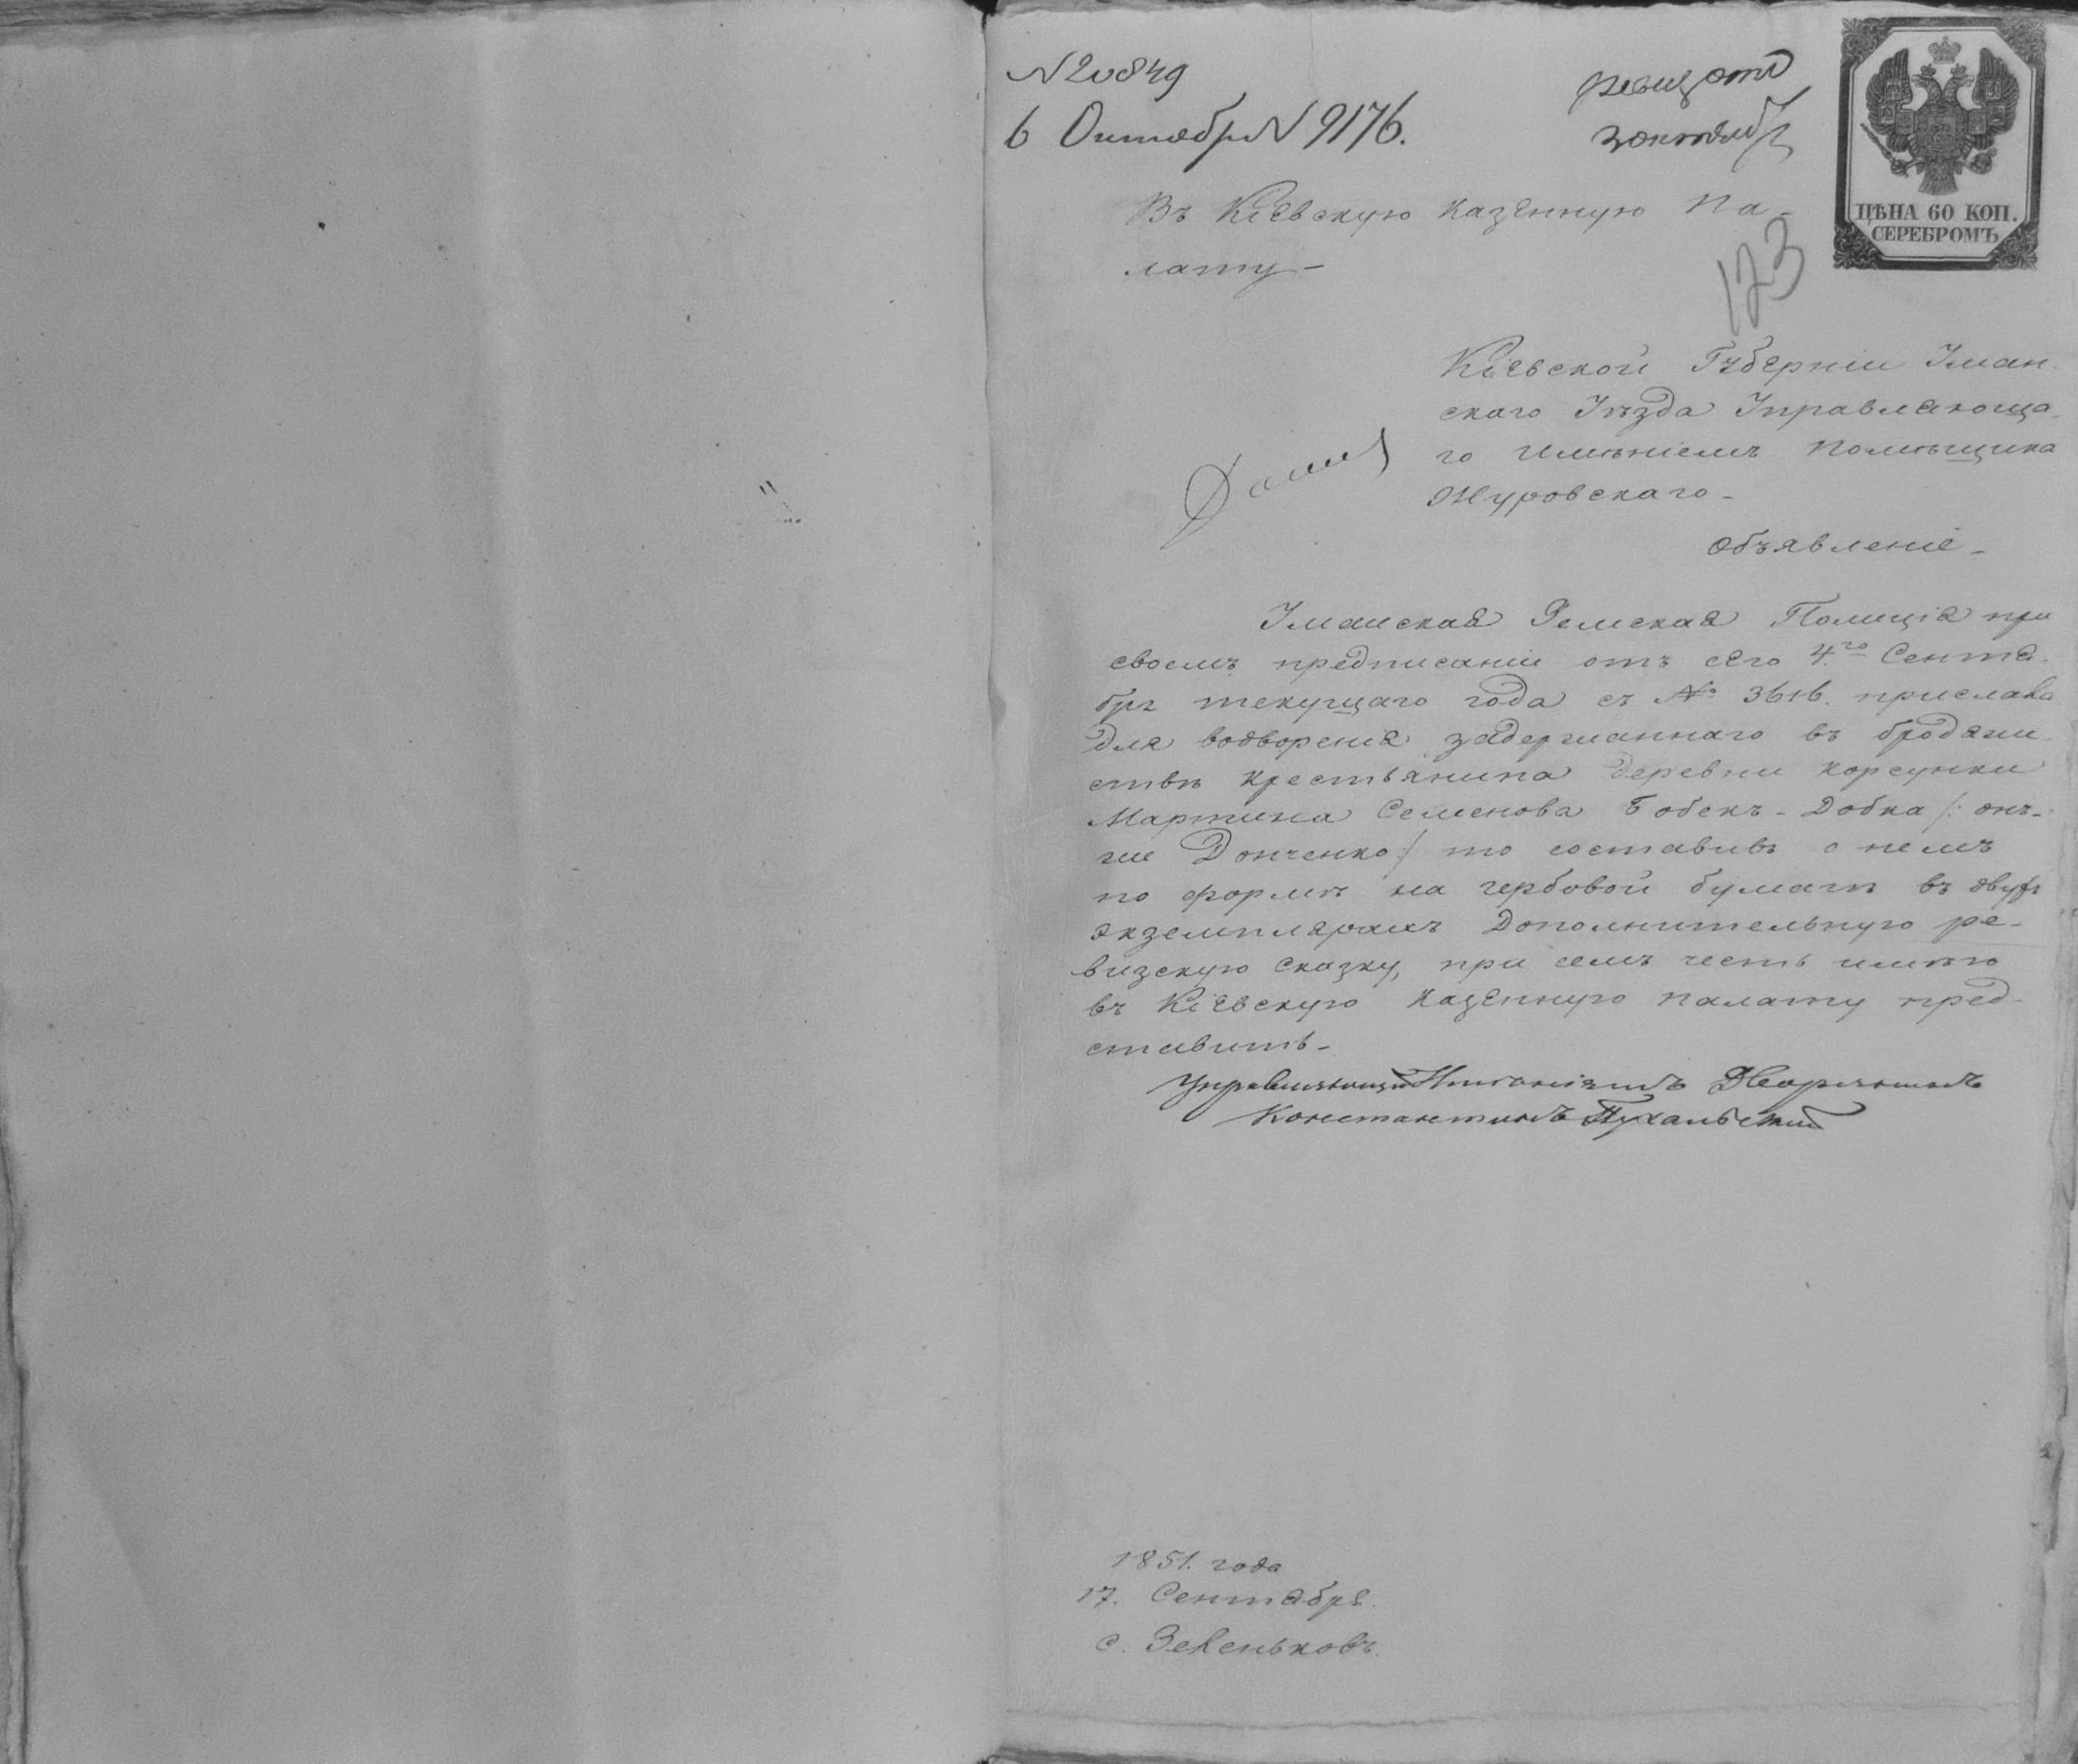 N 20849
6 Октобря N 9176.
ревиз отд
3 октябр
ЦѢНА 60 КОП.
СЕРЕБРОМЪ
Въ Кіевскую Казенную Па-
лату-
123
Кіевской Губерніи Уман-
скаго Уѣзда Управляюща-
го имѣніемъ помѣщика
Журовскаго-
Объявленіе-
Уманская Земская Полиція при
своемъ предписаніи отъ 4.го Сентя-
бря текущаго года съ № 3616. прислала
для водворенія задержаннаго въ бродяж-
ствѣ крестьянина деревни Корсунки
Мартина Семенова Бобекъ-Добка /: онъ-
же Донченко :/ то составивъ о немъ
по формѣ на гербовой бумагѣ въ двухъ
экземплярахъ Дополнительную ре-
визскую Сказку, при семъ честь имѣю
въ Кіевскую Казенную палату пред-
ставить-
Управляющій Имѣніямъ Дворянинъ
Константинъ Пухальскій
1851. года
17. Сентября.
с. Зеленьковъ.